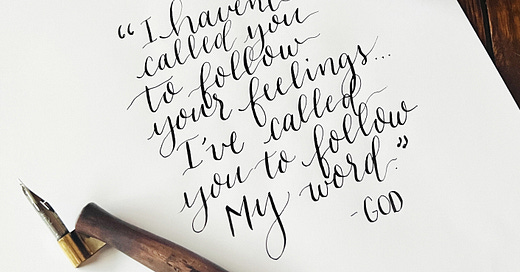 “I haven't
called you
to follow
your feelings...
I've called
you to follow
My word.”
-GOD